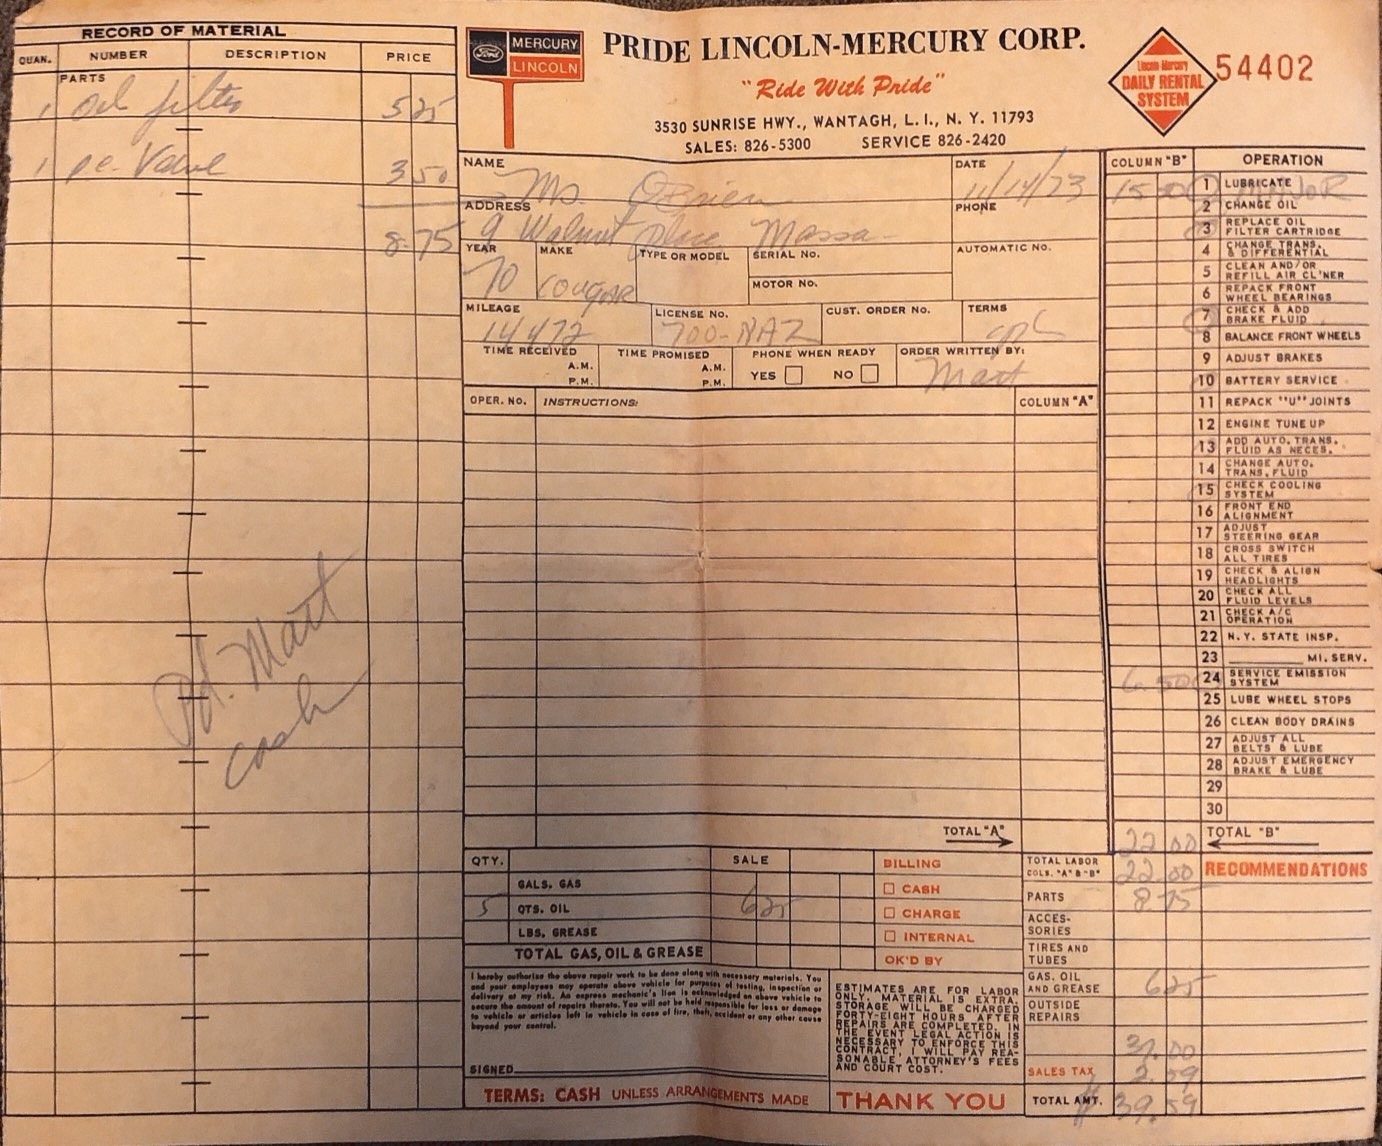 RECORD OF MATERIAL
QUAN. NUMBER DESCRIPTION PRICE
PARTS
1 oil filter 5 25
1 pc. Valve 3 50
8.75
Pd. Matt
cash
Ford MERCURY
LINCOLN
PRIDE LINCOLN-MERCURY CORP.
"Ride With Pride"
3530 SUNRISE HWY., WANTAGH, L. I., N. Y. 11793
SALES: 826-5300 SERVICE 826-2420
Lincoln-Mercury
DAILY RENTAL
SYSTEM
54402
NAME Ms. OBrien DATE 11/14/73
ADDRESS 9 Walnut Place Massa PHONE
YEAR 70 MAKE COUGAR TYPE OR MODEL SERIAL No. AUTOMATIC NO.
MOTOR No.
MILEAGE 14472 LICENSE No. 700-NAZ CUST. ORDER No. TERMS
TIME RECEIVED A.M. P.M. TIME PROMISED A.M. P.M. PHONE WHEN READY YES NO ORDER WRITTEN BY: Matt
OPER. NO. INSTRUCTIONS: COLUMN "A"
TOTAL "A"
COLUMN "B" OPERATION
15 50 1 LUBRICATE MINOR
2 CHANGE OIL
3 REPLACE OIL FILTER CARTRIDGE
4 CHANGE TRANS. & DIFFERENTIAL
5 CLEAN AND/OR REFILL AIR CL'NER
6 REPACK FRONT WHEEL BEARINGS
7 CHECK & ADD BRAKE FLUID
8 BALANCE FRONT WHEELS
9 ADJUST BRAKES
10 BATTERY SERVICE
11 REPACK "U" JOINTS
12 ENGINE TUNE UP
13 ADD AUTO. TRANS. FLUID AS NECES.
14 CHANGE AUTO. TRANS. FLUID
15 CHECK COOLING SYSTEM
16 FRONT END ALIGNMENT
17 ADJUST STEERING GEAR
18 CROSS SWITCH ALL TIRES
19 CHECK & ALIGN HEADLIGHTS
20 CHECK ALL FLUID LEVELS
21 CHECK A/C OPERATION
22 N.Y. STATE INSP.
23 MI. SERV.
6.50 24 SERVICE EMISSION SYSTEM
25 LUBE WHEEL STOPS
26 CLEAN BODY DRAINS
27 ADJUST ALL BELTS & LUBE
28 ADJUST EMERGENCY BRAKE & LUBE
29
30
22.00 TOTAL "B"
QTY. SALE
GALS. GAS
5 QTS. OIL 6 25
LBS. GREASE
TOTAL GAS, OIL & GREASE
BILLING
CASH
CHARGE
INTERNAL
OK'D BY
TOTAL LABOR COLS. "A" & "B" 22.00
RECOMMENDATIONS
PARTS 8.75
ACCESSORIES
TIRES AND TUBES
GAS, OIL AND GREASE 6 25
OUTSIDE REPAIRS
37.00
SALES TAX 2.59
TOTAL AMT. $ 39.59
I hereby authorize the above repair work to be done along with necessary materials. You
and your employees may operate above vehicle for purposes of testing, inspection or
delivery at my risk. An express mechanic's lien is acknowledged on above vehicle to
secure the amount of repairs thereto. You will not be held responsible for loss or damage
to vehicle or articles left in vehicle in case of fire, theft, accident or any other cause
beyond your control.
SIGNED
ESTIMATES ARE FOR LABOR
ONLY, MATERIAL IS EXTRA.
STORAGE WILL BE CHARGED
FORTY-EIGHT HOURS AFTER
REPAIRS ARE COMPLETED. IN
THE EVENT LEGAL ACTION IS
NECESSARY TO ENFORCE THIS
CONTRACT, I WILL PAY REA-
SONABLE ATTORNEY'S FEES
AND COURT COST.
TERMS: CASH UNLESS ARRANGEMENTS MADE
THANK YOU